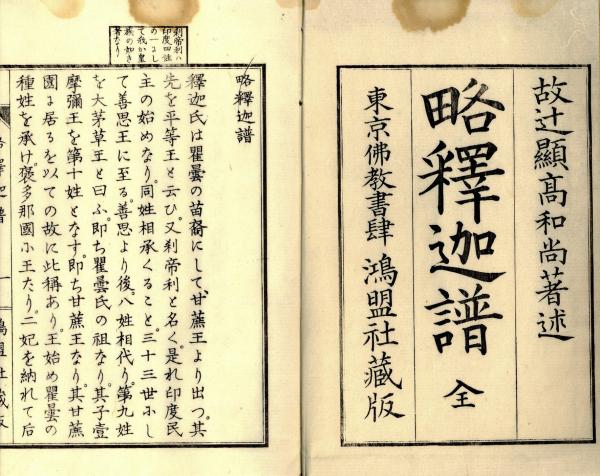 故辻顯高和尚著述
略釋迦譜 全
東京佛教書肆 鴻盟社藏版
刹帝利ハ
印度四姓
の一にし
て我か皇
族の如き
者なり
略釋迦譜
釋迦氏は瞿曇の苗裔にして、甘蔗王より出つ、其
先を平等王と云ひ、又刹帝利と名く、是れ印度民
主の始めなり、同姓相承くること、三十三世ふし
て善思王に至る、善思より後、八姓相代り、第九姓
を大茅草王と曰ふ、即ち瞿曇氏の祖なり、其子壹
摩彌王を第十姓となす、即ち甘蔗王なり、其甘蔗
園よ居るを以ての故に此稱あり、王始め瞿曇の
種姓を承け、褒多那國小王たり、二妃を納れて后
釋迦譜 一 鴻盟社藏版